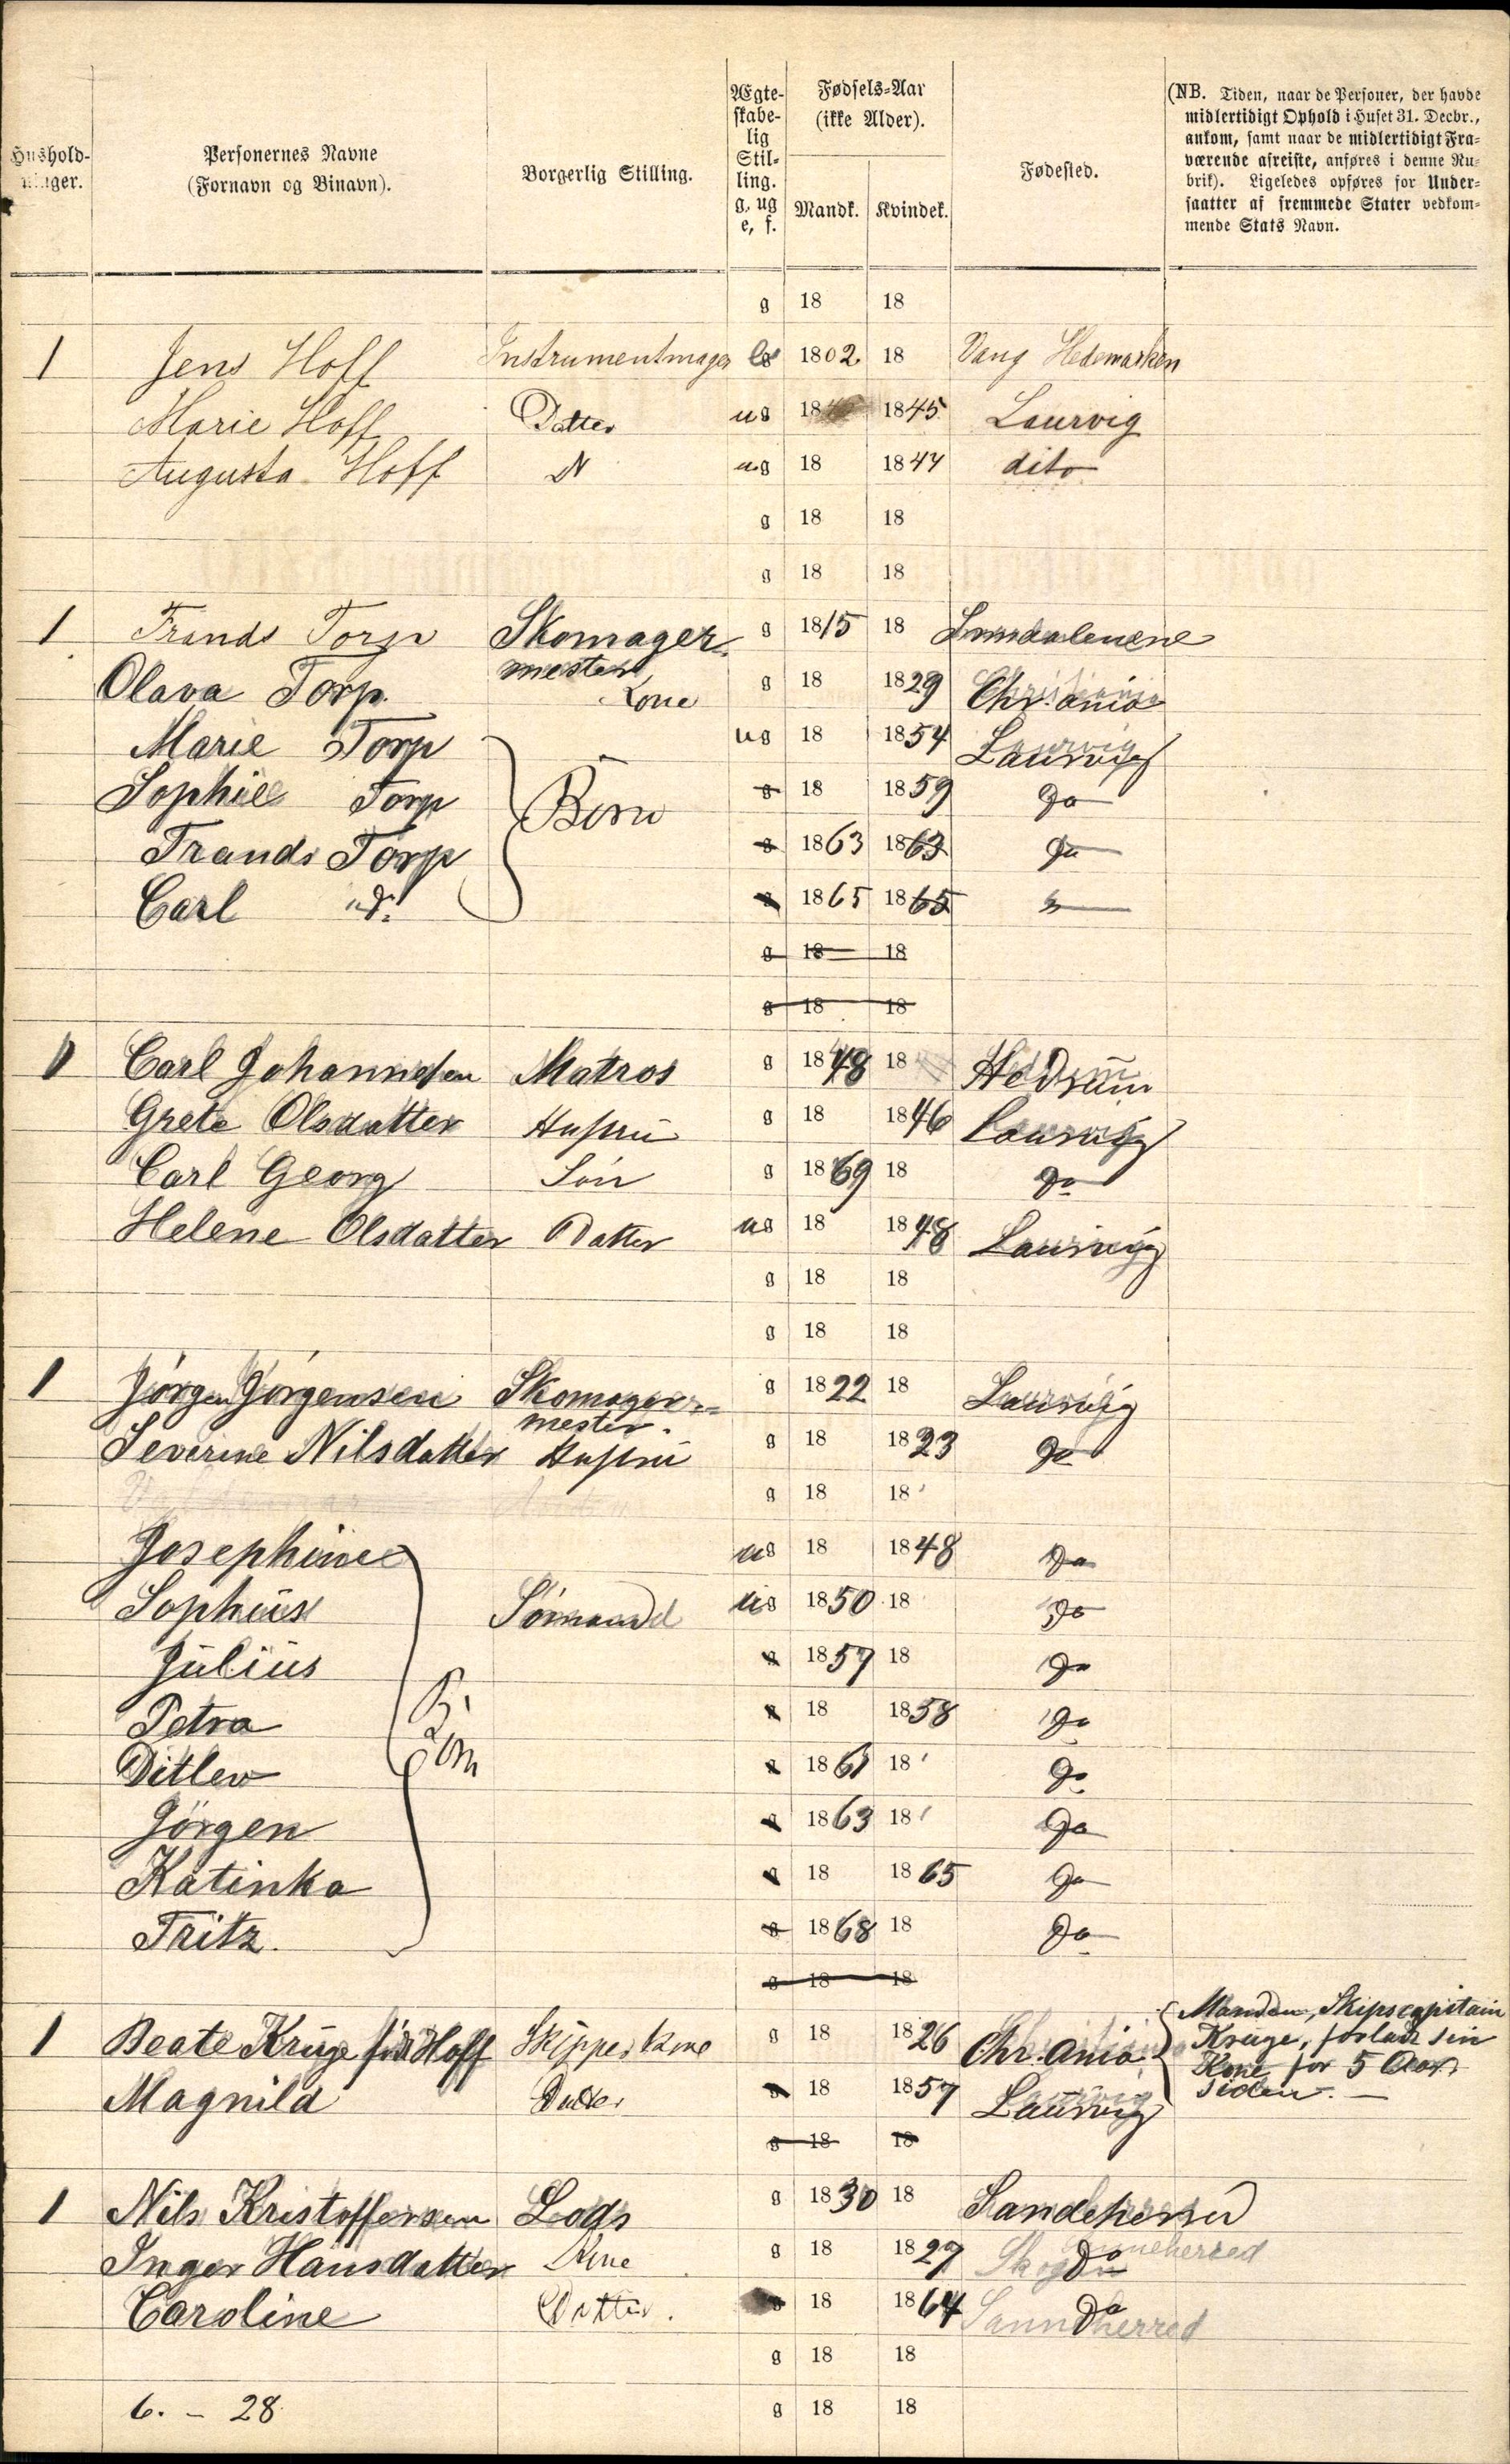 Hushold-
ninger.
Personernes Navne
(Fornavn og Binavn).
Borgerlig Stilling.
Ægte-
skabe-
lig
Stil-
ling.
g, ug
e, f.
Fødsels-Aar
(ikke Alder).
Mandk. Kvindek.
Fødested.
(NB. Tiden, naar de Personer, der havde
midlertidigt Ophold i Huset 31. Decbr.,
ankom, samt naar de midlertidigt Fra-
værende afreiste, anføres i denne Ru-
brik). Ligeledes opføres for Under-
saatter af fremmede Stater vedkom-
mende Stats Navn.
g 18 18
1 Jens Hoff Instrumentmager e 1802 18 Vang Hedemarken
Marie Hoff Datter ug 18 1845 Laurvig
Augusta Hoff ug 18 1847 dito
g 18 18
g 18 18
1 Frands Torp Skomager- g 1815 18
mester
Olava Torp Kone g 18 1829 Chr.ania
Marie Torp ug 18 1854 Laurvig
Sophie Torp Børn g 18 1859 Do
Frands Torp g 1863 1863 Do
Carl d. g 1865 1865
g 18 18
g 18 18
1 Carl Johannesen Matros g 1848 18 Hedrum
Grete Olsdatter Hustru g 18 1846 Laurvig
Carl Georg Søn g 1869 18 Do
Helene Olsdatter Datter ug 18 1848 Laurvig
g 18 18
g 18 18
1 Jørgen Jørgensen Skomager- g 1822 18 Laurvig
mester.
Severine Nilsdatter Hustru g 18 1823 Do
g 18 18
Josephine ug 18 1848 Do
Sophus Sømand ug 1850 18 Do
Julius g 1857 18 Do
Petra Børn g 18 1858 Do
Ditlev g 1861 18 Do
Jørgen g 1863 18 Do
Katinka g 18 1865 Do
Fritz. g 1868 18 Do
g 18 18
1 Beate Krüge født Hoff Skipperkone g 18 1826 Chr.ania
Manden, Skipscapitain
Krüge, forladt sin
Kone for 5 Aar
siden. —
Magnild Datter g 18 1857 Laurvig
g 18 18
1 Nils Kristoffersen Lods g 1830 18 Sandeherred
Inger Hansdatter Kone g 18 1827 Do
Caroline Datter. g 18 1864 Do
g 18 18
6. - 28 g 18 18